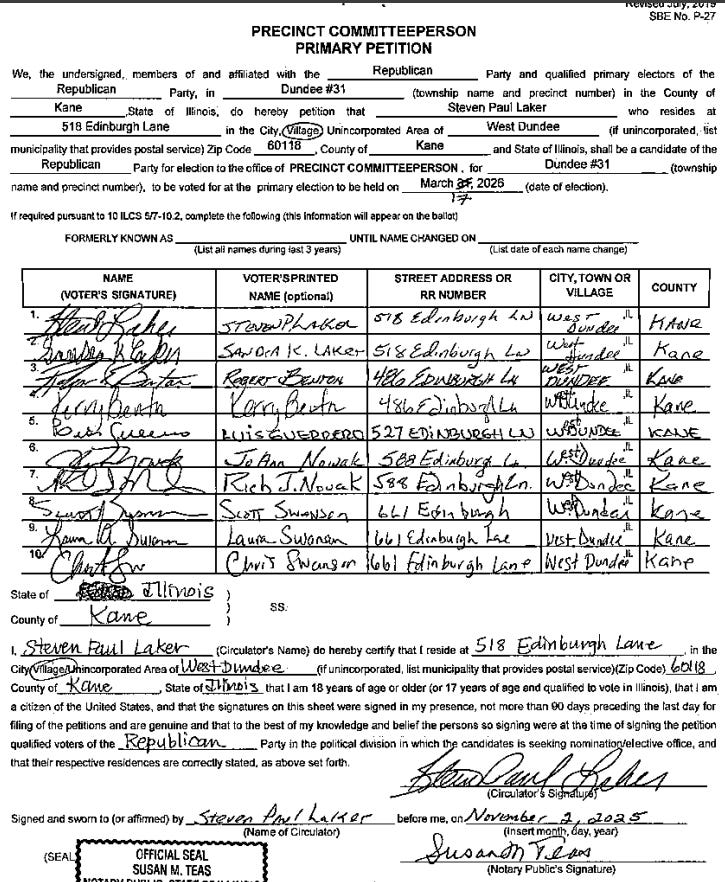 Revised July, 2019
SBE No. P-27
PRECINCT COMMITTEEPERSON
PRIMARY PETITION
We, the undersigned, members of and affiliated with the Republican Party and qualified primary electors of the
Republican Party, in Dundee #31 (township name and precinct number) in the County of
Kane ,State of Illinois, do hereby petition that Steven Paul Laker who resides at
518 Edinburgh Lane in the City, Village, Unincorporated Area of West Dundee (if unincorporated, list
municipality that provides postal service) Zip Code 60118 , County of Kane and State of Illinois, shall be a candidate of the
Republican Party for election to the office of PRECINCT COMMITTEEPERSON , for Dundee #31 (township
name and precinct number), to be voted for at the primary election to be held on March 17, 2026 (date of election).
If required pursuant to 10 ILCS 5/7-10.2, complete the following (this information will appear on the ballot)
FORMERLY KNOWN AS UNTIL NAME CHANGED ON
(List all names during last 3 years) (List date of each name change)
NAME (VOTER'S SIGNATURE) VOTER'S PRINTED NAME (optional) STREET ADDRESS OR RR NUMBER CITY, TOWN OR VILLAGE COUNTY
1. STEVEN P LAKER 518 Edinburgh LN West Dundee IL KANE
2. SANDRA K. LAKER 518 Edinburgh LN West Dundee IL Kane
3. ROBERT BENTON 486 EDINBURGH LN WEST DUNDEE IL KANE
4. Kerry Benton Kerry Benton 486 Edinburgh Ln W. Dundee IL Kane
5. LUIS GUERRERO 527 EDINBURGH LN W DUNDEE IL KANE
6. JoAnn Nowak 588 Edinburgh Ln West Dundee IL Kane
7. Rich J. Nowak 588 Edinburgh Ln. W. Dundee IL Kane
8. Scott Swanson 661 Edinburgh W. Dundee IL Kane
9. Laura Swanson 661 Edinburgh Lane West Dundee IL Kane
10. Chris Swanson 661 Edinburgh Lane West Dundee IL Kane
State of Illinois )
) SS.
County of Kane )
I, Steven Paul Laker (Circulator's Name) do hereby certify that I reside at 518 Edinburgh Lane , in the
City/Village/Unincorporated Area of West Dundee (if unincorporated, list municipality that provides postal service)(Zip Code) 60118
County of Kane , State of Illinois that I am 18 years of age or older (or 17 years of age and qualified to vote in Illinois), that I am
a citizen of the United States, and that the signatures on this sheet were signed in my presence, not more than 90 days preceding the last day for
filing of the petitions and are genuine and that to the best of my knowledge and belief the persons so signing were at the time of signing the petition
qualified voters of the Republican Party in the political division in which the candidates is seeking nomination/elective office, and
that their respective residences are correctly stated, as above set forth.
Steven Paul Laker
(Circulator's Signature)
Signed and sworn to (or affirmed) by Steven Paul Laker before me, on November 2, 2025
(Name of Circulator) (Insert month, day, year)
Susan M Teas
(Notary Public's Signature)
(SEAL)
OFFICIAL SEAL
SUSAN M. TEAS
NOTARY PUBLIC, STATE OF ILLINOIS